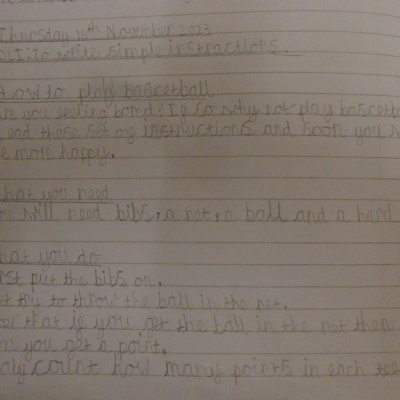 Thursday 16th November 2023
O.L.I: to write simple instructions.
How to play bascetball
are you feeling bored? If so why not play bascetba
ead these set of instructions and soon you w
e more happy.
hat you need
ou will need bibs, a net, a ball and a hard
hat you do
rst put the bibs on.
t try to throw the ball in the net.
er that if you get the ball in the net then
m you get a point.
ly count how many points in each tea